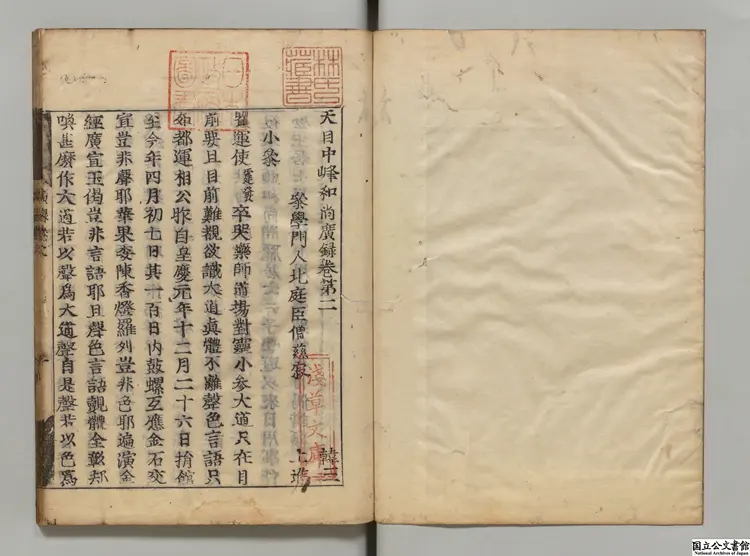 天目中峰和尚廣錄卷第二
參學門人北庭臣僧慈寂 上進
小參
瞿運使霆發卒哭藥師道場對靈小參大道只在目
前要且目前難覩欲識大道真體不離聲色言語只
如都運相公昨自皇慶元年十二月二十六日捐館
至今年四月初七日其一百日内鼓螺互應金石交
宣豈非聲耶華果委陳香燈羅列豈非色耶遍演金
經廣宣玉偈豈非言語耶且聲色言語覿體全彰却
喚甚麼作大道若以聲為大道聲自是聲若以色為
林氏藏書
日本政府圖書
淺草文庫
国立公文書館
National Archives of Japan